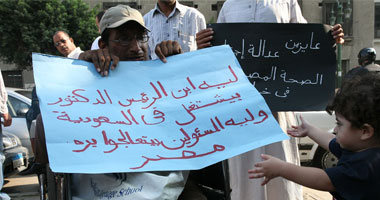 ليه ابن الرئيس الدكتور
بيشتغل فى السعودية
وليه المسئولين بيتعالجوا بره
مصر
عايزين عدالة
الصحة
فى
School